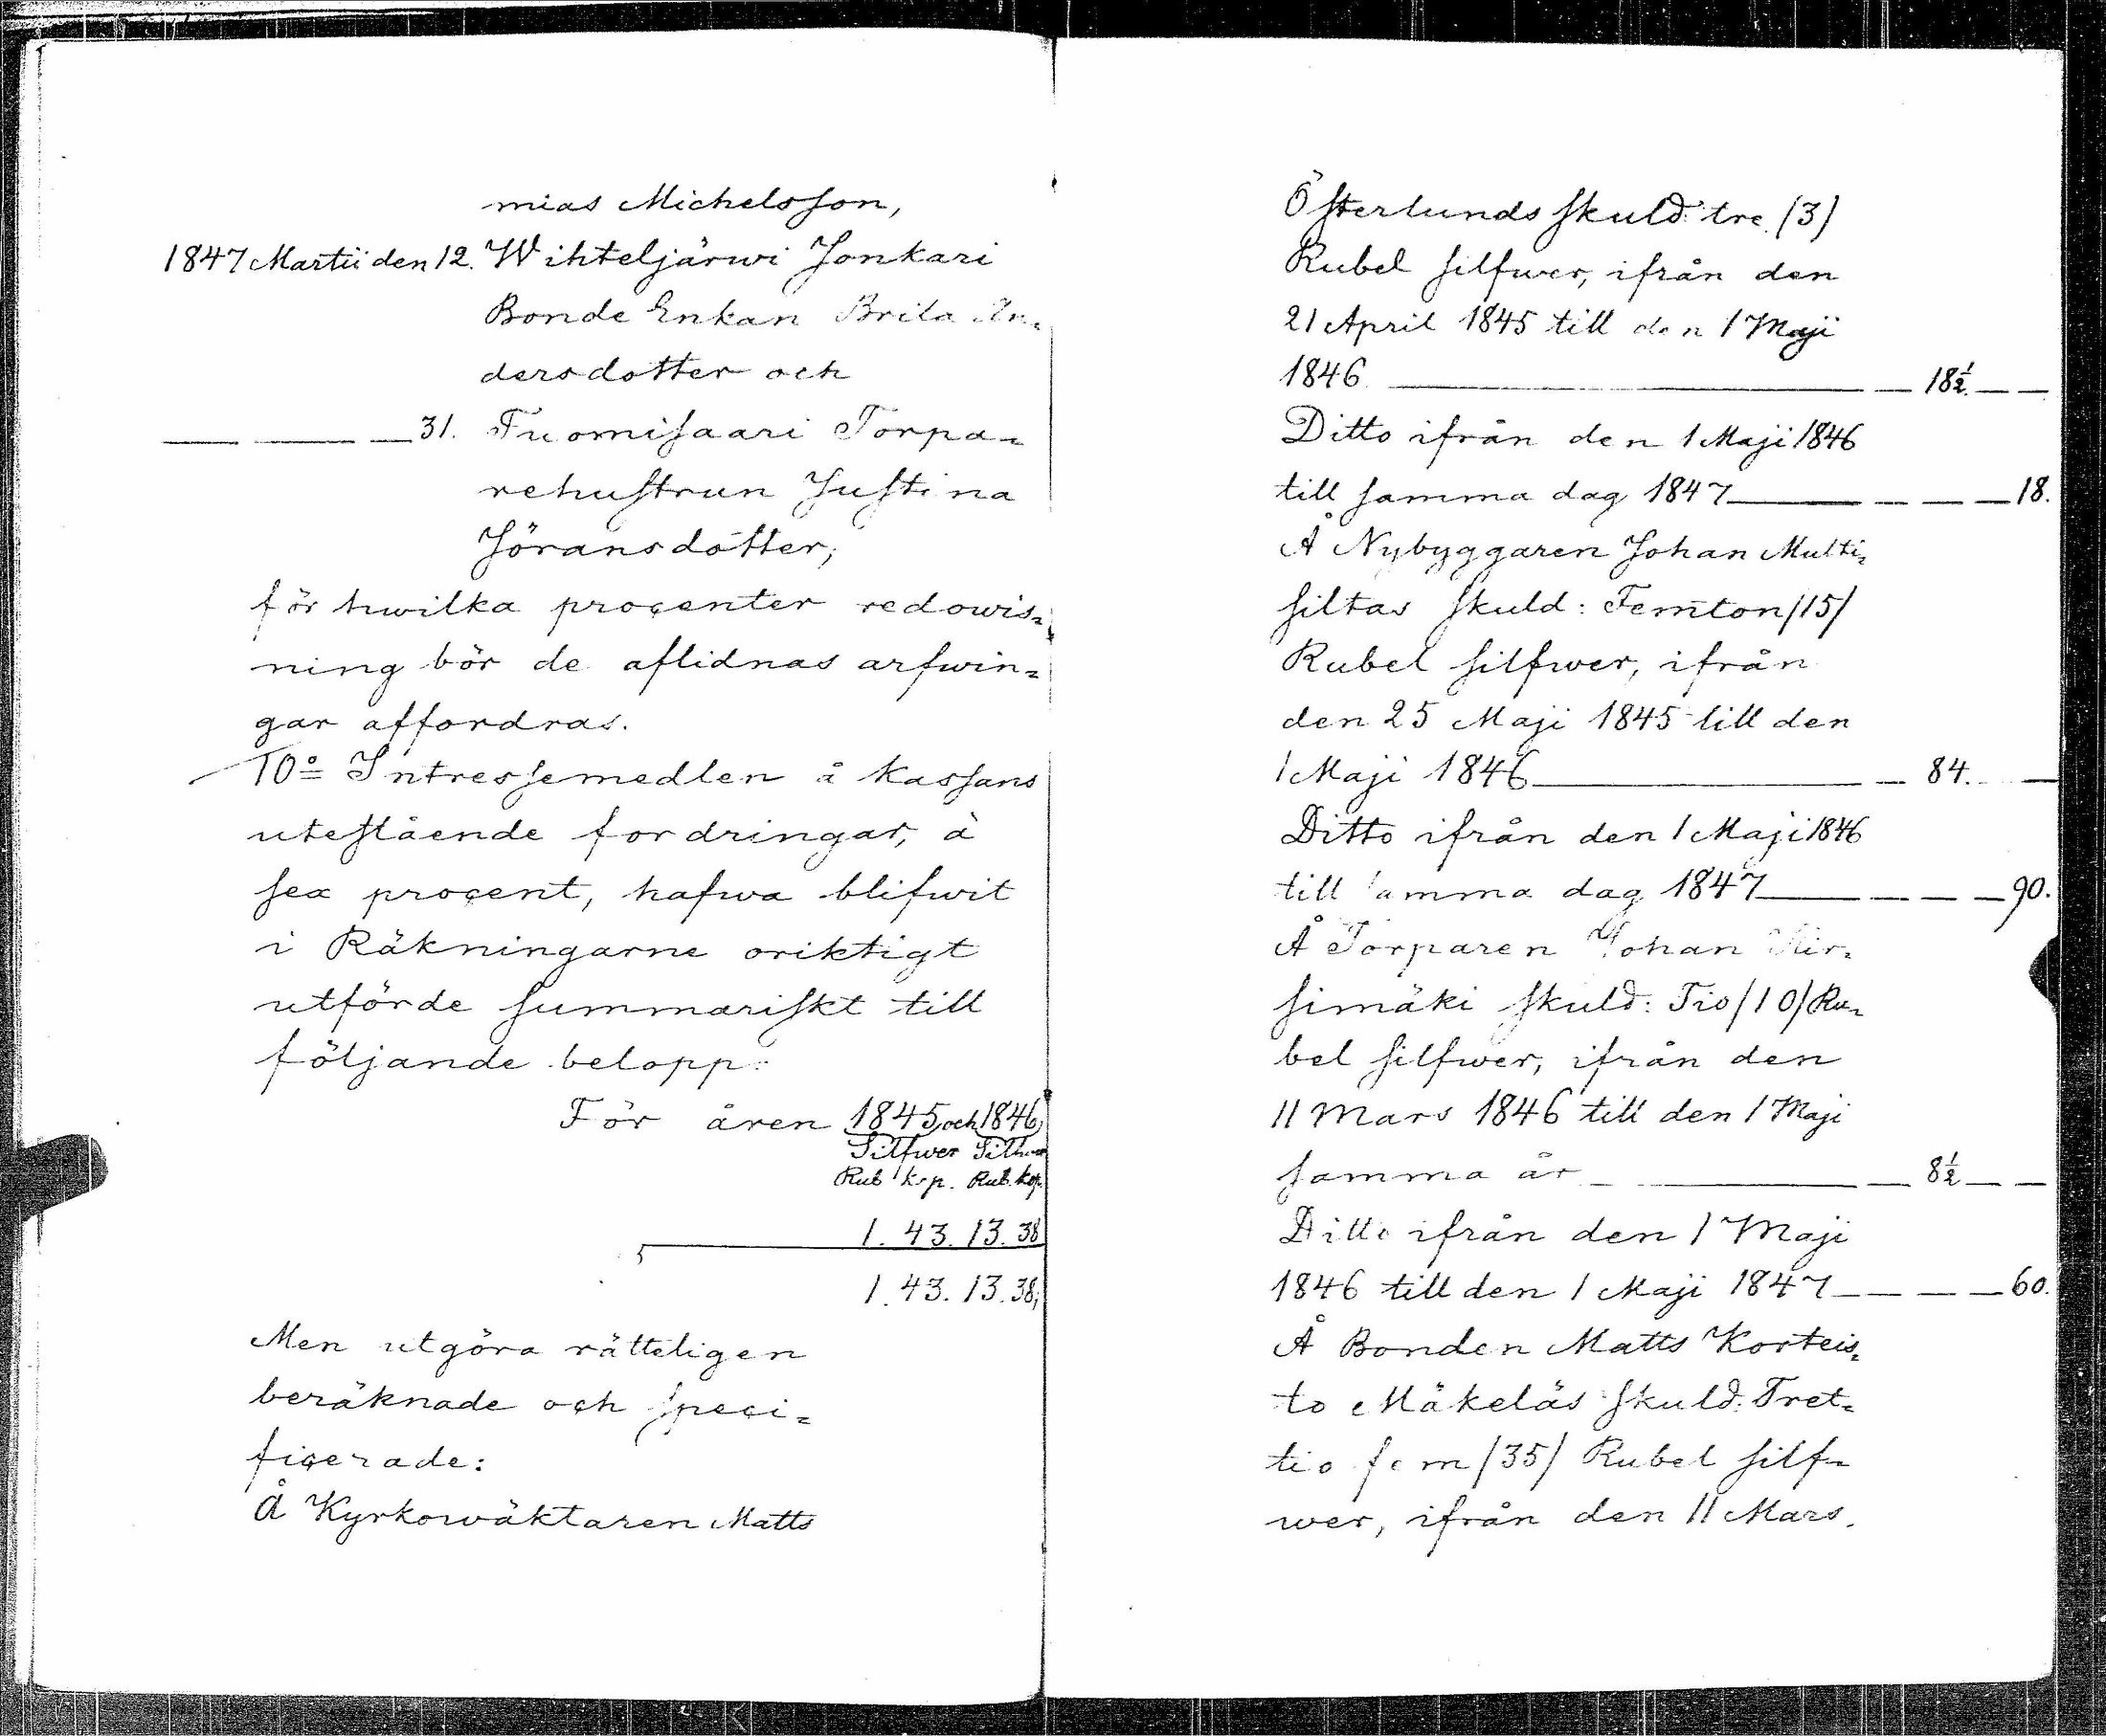 mias Michelsson,
1847 Martii den 12. Wihteljärwi Jonkari
Bonde Enkan Brita An=
dersdotter och
31. Tuomisaari Torpa=
rehustrun Justina
Jöransdotter;
för hwilka procenter redowis=
ning bör de aflidnas arfwin=
gar affordras.
10º Intressemedlen å kassans
utestående fordringar, à
sex procent, hafwa blifwit
i Räkningarne oriktigt
utförde summariskt till
följande belopp:
För åren 1845 och 1846
Silfwer Silfwer
Rub kop. Rub. kop.
1. 43. 13. 38
1. 43. 13. 38;
Men utgöra rätteligen
beräknade och speci=
ficerade:
Å Kyrkowäktaren Matts
Österlunds skuld: tre (3)
Rubel silfwer, ifrån den
21 April 1845 till den 1 Maji
1846 — 18½. — —
Ditto ifrån den 1 Maji 1846
till samma dag 1847 — — — — 18.
Å Nybyggaren Johan Multi=
siltas skuld: Femton /15/
Rubel silfwer, ifrån
den 25 Maji 1845 till den
1 Maji 1846 — — 84. —
Ditto ifrån den 1 Maji 1846
till samma dag 1847 — — — — 90.
Å Torparen Johan Kir=
simäki skuld: Tio /10/ Ru=
bel silfwer, ifrån den
11 Mars 1846 till den 1 Maji
samma år — — — 8½ — —
Ditto ifrån den 1 Maji
1846 till den 1 Maji 1847 — — — — 60.
Å Bonden Matts Korteis=
to Mäkeläs skuld: Tret=
tio fem /35/ Rubel silf=
wer, ifrån den 11 Mars.